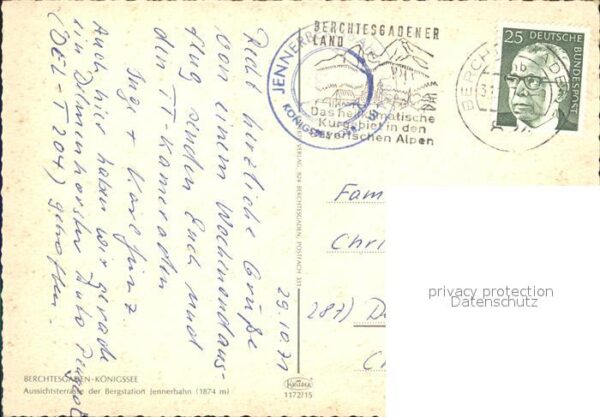 BERCHTESGADENER
LAND
JENNERB
KÖNIGSSEE
Das heilklimatische
Kurgebiet in den
Bayerischen Alpen
BERCHTESGADEN
25 DEUTSCHE
BUNDESPOST
Recht herzliche Grüße
von einem Wochenendaus-
flug senden Euch und
den TT-Kameraden
Inge + Karl Heinz
Auch hier haben wir gerade
ein Delmenhorster Auto
(DEL-T 204) getroffen.
29.10.71
Fam
Chri
287) D
C
VERLAG, 824 BERCHTESGADEN, POSTFACH
privacy protection
Datenschutz
BERCHTESGADEN-KÖNIGSSEE
Aussichtsterrasse der Bergstation Jennerbahn (1874 m)
1172/15